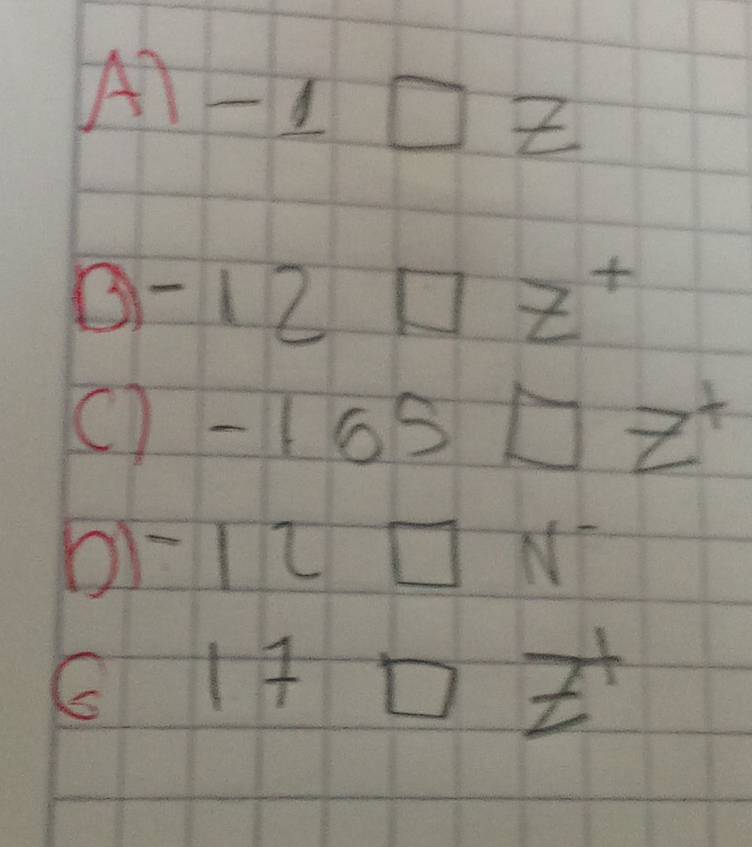 A) -1 □ Z
B) -12 □ Z⁺
C) -165 □ Z⁺
D) -12 □ N⁻
G 17 □ Z⁺